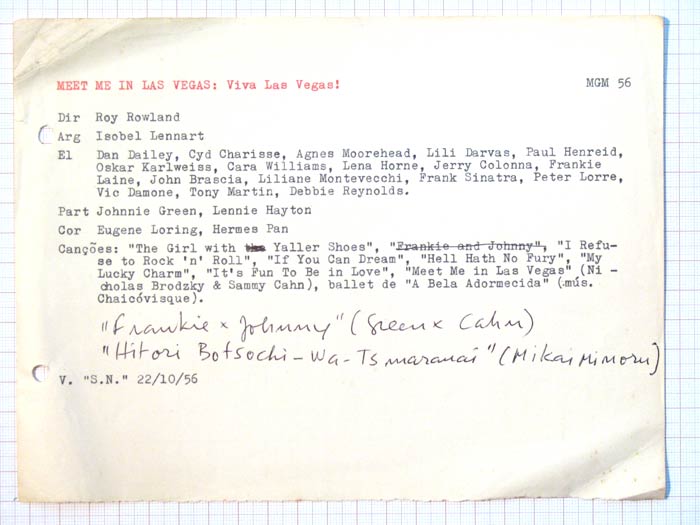 MEET ME IN LAS VEGAS: Viva Las Vegas! MGM 56
Dir Roy Rowland
Arg Isobel Lennart
El Dan Dailey, Cyd Charisse, Agnes Moorehead, Lili Darvas, Paul Henreid,
Oskar Karlweiss, Cara Williams, Lena Horne, Jerry Colonna, Frankie
Laine, John Brascia, Liliane Montevecchi, Frank Sinatra, Peter Lorre,
Vic Damone, Tony Martin, Debbie Reynolds.
Part Johnnie Green, Lennie Hayton
Cor Eugene Loring, Hermes Pan
Canções: "The Girl with the Yaller Shoes", "Frankie and Johnny", "I Refu-
se to Rock 'n' Roll", "If You Can Dream", "Hell Hath No Fury", "My
Lucky Charm", "It's Fun To Be in Love", "Meet Me in Las Vegas" (Ni-
cholas Brodzky & Sammy Cahn), ballet de "A Bela Adormecida" (mús.
Chaicóvisque).
"Frankie x Johnny" (Green x Cahn)
"Hitori Botsochi-wa-Tsmaranai" (Mikai Minoru)
V. "S.N." 22/10/56